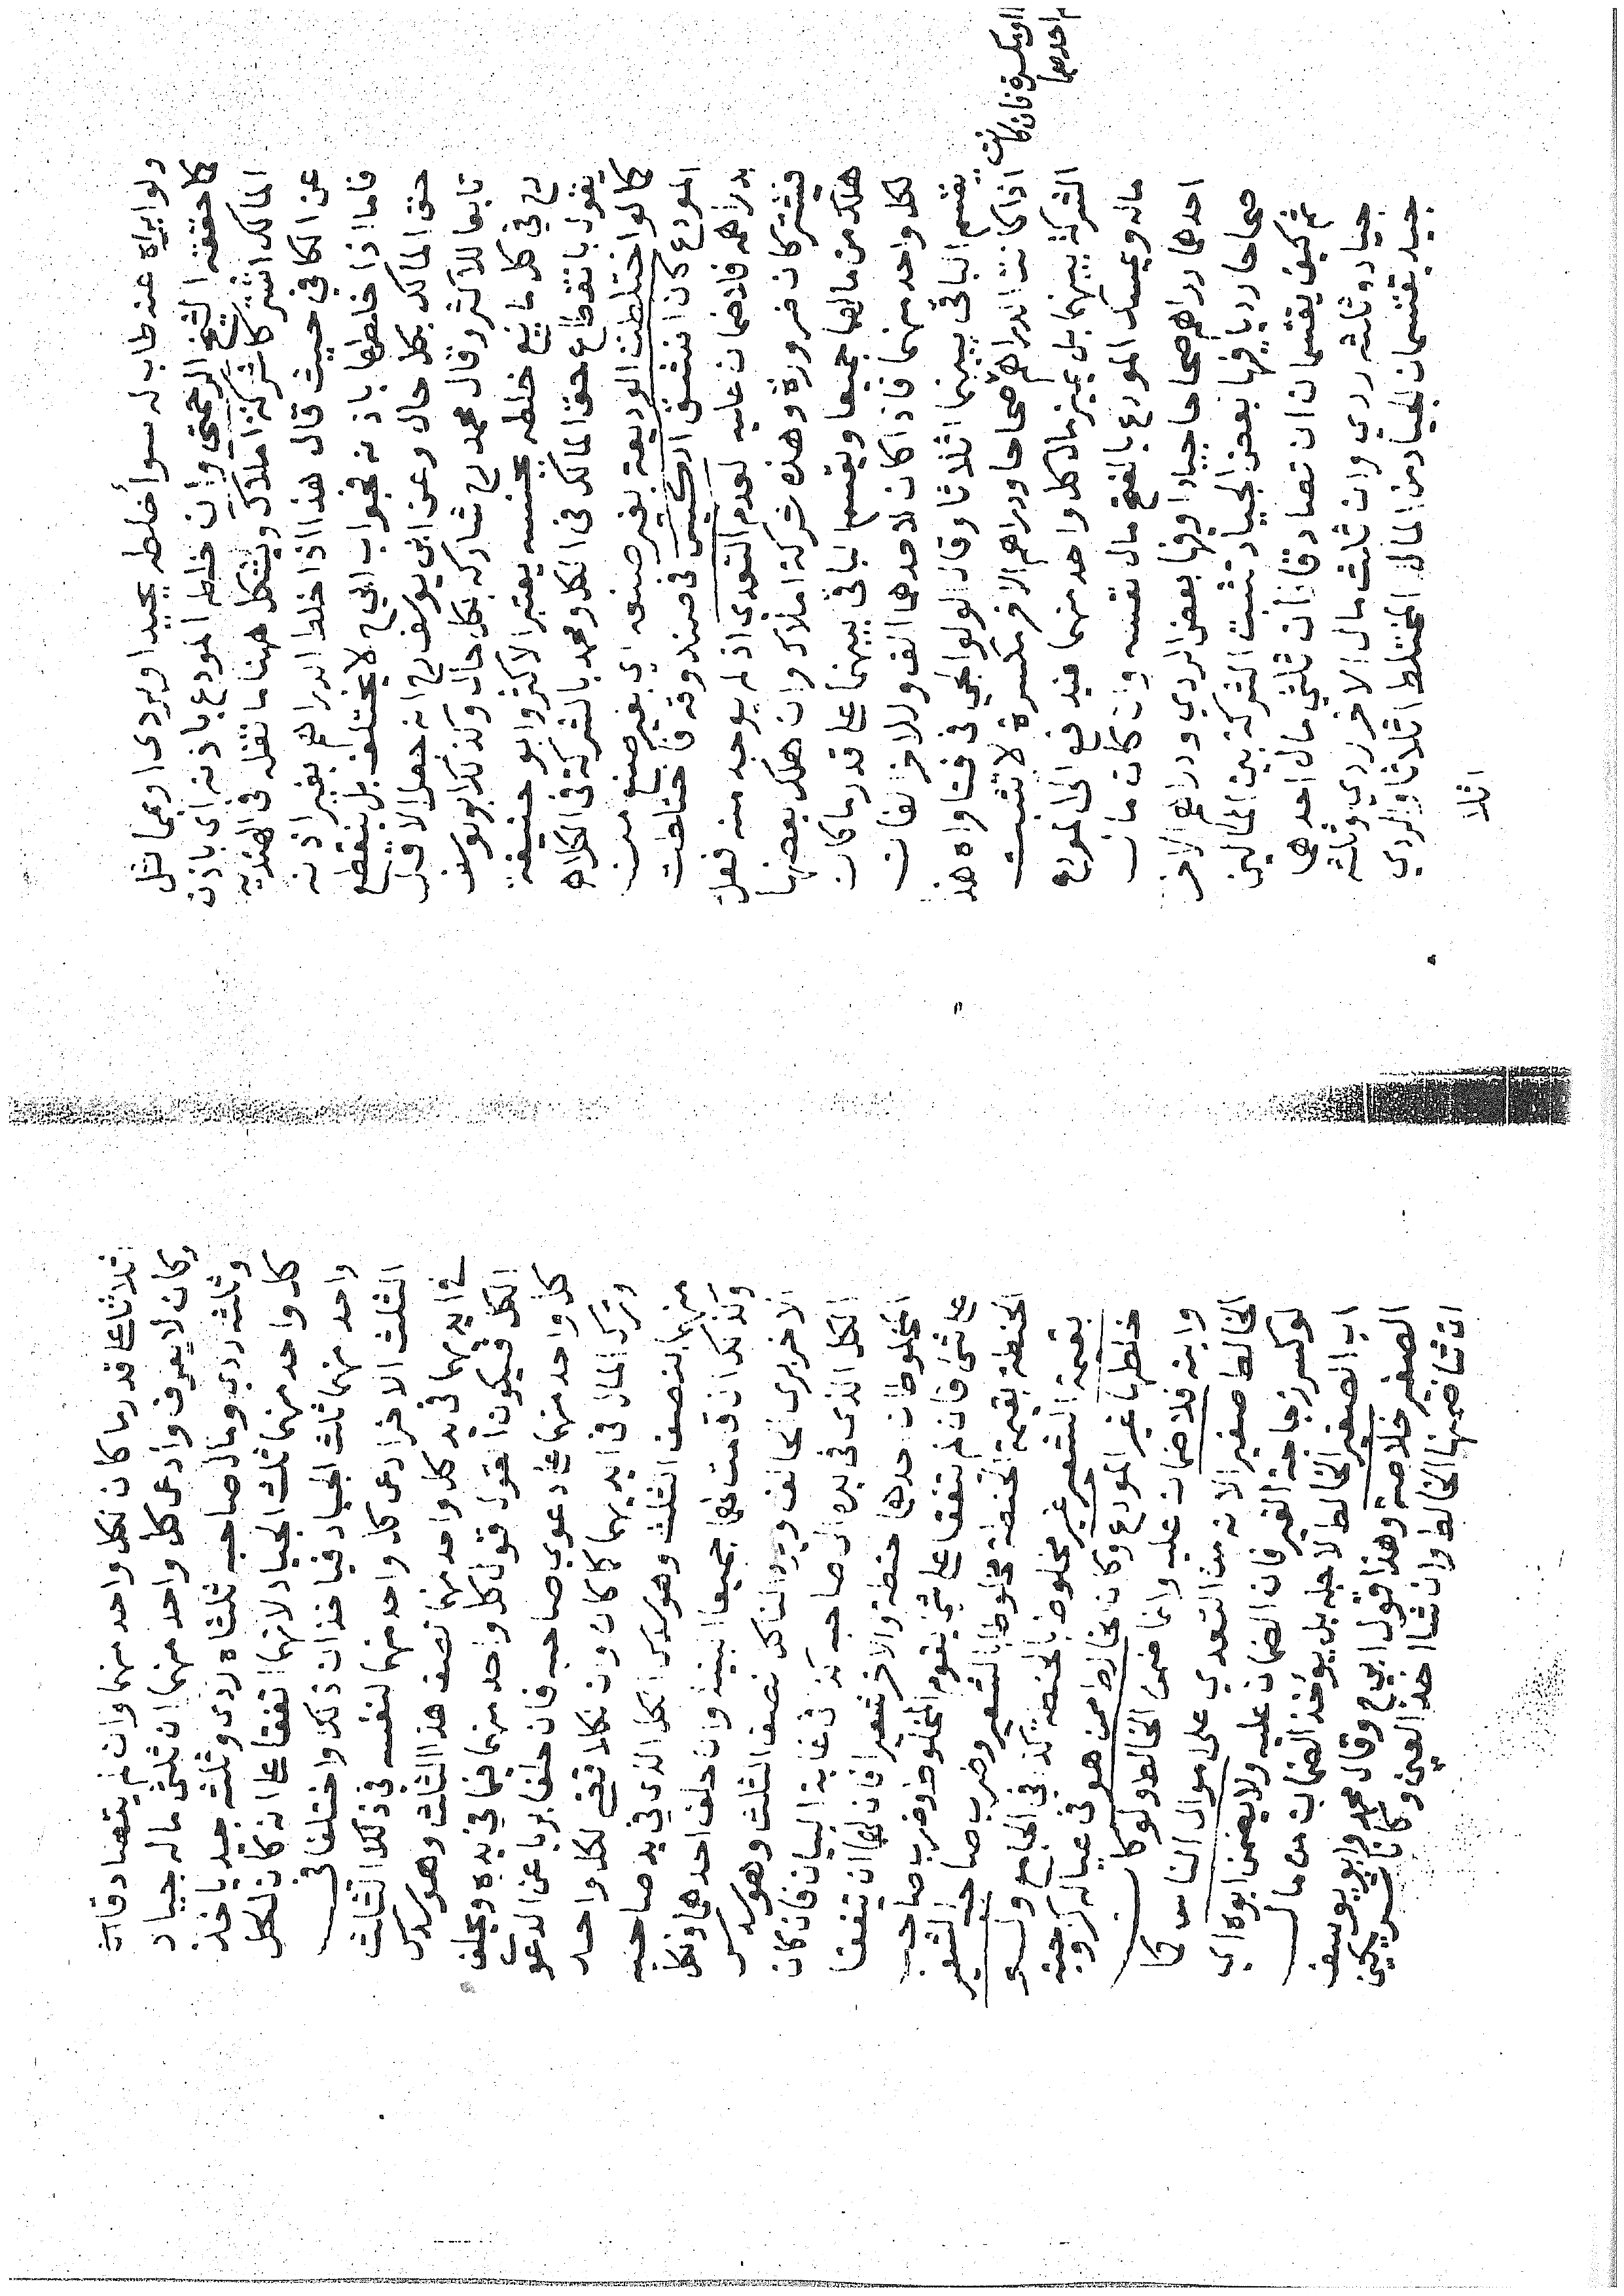 ولو ابراه عند طاب له سوأ خلطه بجيدا وبردى او بمماثل
كما حققه الشيخ الرحمتي وان خلط المودع باذنه أي باذن
المالك اشتركا شركة املاك ويشكل هنا ما نقله فى الهنديه
عن الكافي حيث قال هذا اذا خلط الدراهم بغير اذنه
فاما اذا خلطها باذنه فجواب ابي ح لا يختلف بل ينقطع
حق المالك بكل حال وعن ابي يوسف رح انه جعل الاقل
تابعا للاكثر وقال محمد رح شاركه بكل حال وكذلك ابو يوسف
رح في كل مايع خلطه بجنسه يعتبر الاكثر وابو حنيفة
يقول بانقطاع حق المالك فى الكل ومحمد بالشركة فى الكل اه
كما لو اختلطت الوديعة بغير صنعه اي بغير صنع من
المودع كان انشق الكيس فى صندوقه فاختلطت
بدراهمه فلا ضمان عليه لعدم التعدى اذ لم يوجد منه فعل
فيشتركان ضرورة وهذه شركة املاك وان هلك بعضها
هلك من مالهما جميعا ويقسم الباقى بينهما على قدر ما كان
لكل واحد منهما فاذا كان لاحدهما الف وللاخر الفان
يقسم الباقي بينهما اثلاثا وقال الولوالجي في فتاواه هذا
اذا كانت الدراهم صحاحا ودراهم الاخر مكسرة لا تثبت
او مكسرة فان كانت
دراهم احدهما
الشركة بينهما بل يميز مال كل واحد منهما فيدفع الى المودع
ماله ويمسك المودع بالفتح مال نفسه وان كانت مال
احدهما دراهم صحاحا جيادا وفيها بعض الردي ودراهم الاخر
صحاحا رديا وفيها بعض الجياد تثبت الشركة بين المالكين
ثم كيف يقتسمان ان تصادقا ان ثلثي مال احدهما
جياد وثلثه ردي وان ثلث مال الاخر ردي وثلثه
جيد يقتسمان الجياد من المال المختلط اثلاثا والردي
اثلا
ثلاثا على قدر ما كان لكل واحد منهما وان لم يتصادقا
وكان لا يعرف وادعى كل واحد منهما ان ثلثى ماله جياد
وثلثه ردي ومال صاحبه ثلثاه ردى وثلثه جيد ياخذ
كل واحد منهما ثلث الجياد لانهما اتفقا على انه كان لكل
واحد منهما ثلث الجياد فياخذان ذلك واختلفا فى
الثلث الاخر ادعى كل واحد منهما لنفسه في ذلك الثلث
في ايديهما في يد كل واحد منهما نصف هذا الثلث وهو سدس
الكل فيكون القول قول كل واحد منهما فيما في يده ويحلف
كل واحد منهما على دعوى صاحبه فان حلفا بريا عن الدعوى
وترك المال فى ايديهما كما كان وان نكلا قضى لكل واحد
منهما بنصف الثلث وهو سدس الكل الذي في يد صاحبه
وكذلك ان قامت لهما جميعا البينة وان حلف احدهما ونكل
الاخر برى الحالف ويرد الناكل نصف الثلث وهو سدس
الكل الذى فى يده الى صاحبه كذا فى غاية البيان فان كان
المخلوطان احدهما حنطة والاخر شعيرا فان لهما ان يتفقا
على شئ فان لم يتفقا على شئ يقوم المخلوط وضرب صاحب
الحنطة بقيمة الحنطة مخلوطا بالشعير وضرب صاحب الشعير
بقيمة الشعير غير مخلوط بالحنطة كذا في الجامع ولو
خلطها غير المودع وكان الخالط من هو فى عياله كزوجته
وابنه فلا ضمان عليه وانما ضمن الخالط ولو كان
الخالط صغير الانه من التعدي على اموال الناس كما
لو كسر زجاجة الغير فان الضمان عليه ولا يضمن ابوه اي
اب الصغير الخالط لاجله بل يؤخذ الضمان من مال
الصغير خلاصة وهذا قول ابي ح وقال محمد وابو يوسف
ان شا ضمنها الخالط وان شا اخذ العين وكانا شريكين